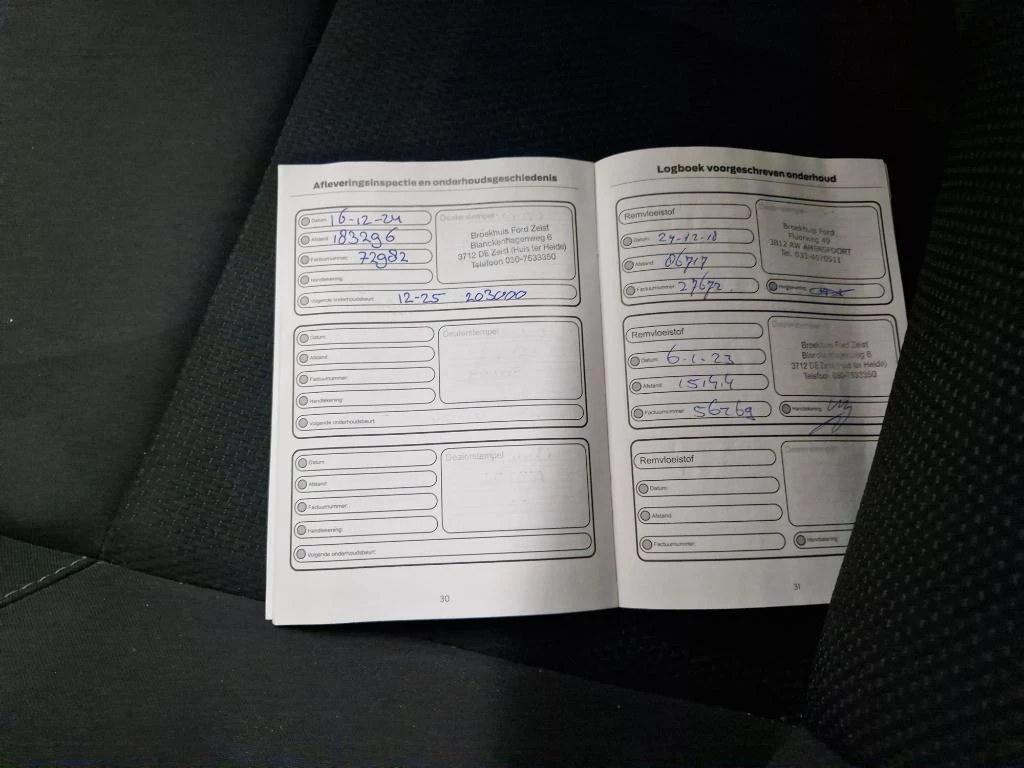 Afleveringsinspectie en onderhoudsgeschiedenis
Datum: 16-12-24
Afstand: 183296
Factuurnummer: 72982
Handtekening:
Volgende onderhoudsbeurt: 12-25 203000
Dealerstempel
Broekhuis Ford Zeist
Blanckenhagenweg 6
3712 DE Zeist (Huis ter Heide)
Telefoon 030-7533350
Datum:
Afstand:
Factuurnummer:
Handtekening:
Volgende onderhoudsbeurt:
Dealerstempel
Datum:
Afstand:
Factuurnummer:
Handtekening:
Volgende onderhoudsbeurt:
Dealerstempel
30
Logboek voorgeschreven onderhoud
Remvloeistof
Datum: 24-12-18
Afstand: 06717
Factuurnummer: 27672.
Dealerstempel
Broekhuis Ford
Fluorweg 49
3812 RW AMERSFOORT
Tel. 033-4570511
Handtekening:
Remvloeistof
Datum: 6-1-23
Afstand:
Factuurnummer: 56269
Dealerstempel
Broekhuis Ford Zeist
Blanckenhagenweg 6
3712 DE Zeist (Huis ter Heide)
Telefoon 030-7533350
Handtekening:
Remvloeistof
Datum:
Afstand:
Factuurnummer:
Dealerstempel
Handtekening:
31